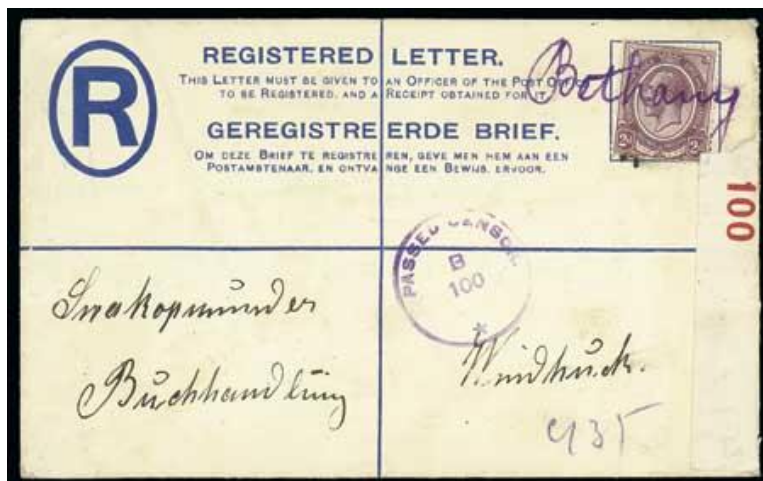 R
REGISTERED LETTER.
THIS LETTER MUST BE GIVEN TO AN OFFICER OF THE POST
TO BE REGISTERED, AND A RECEIPT OBTAINED FOR IT
GEREGISTREERDE BRIEF.
OM DEZE BRIEF TE REGISTREREN, GEVE MEN HEM AAN EEN
POSTAMBTENAAR, EN ONTVANGE EEN BEWIJS ERVOOR.
Bethany
100
PASSED CENSOR
B
100
Swakopmünder
Buchhandlung
Windhuck.
935